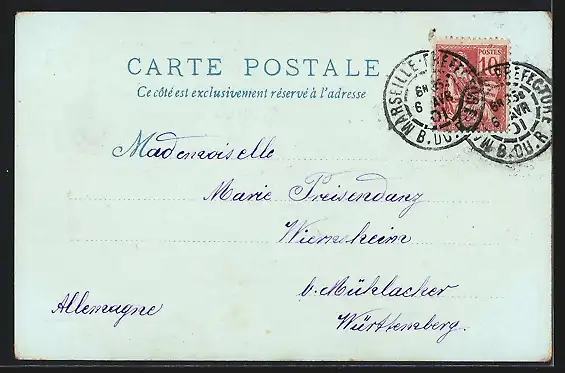 CARTE POSTALE
Ce côté est exclusivement réservé à l'adresse
POSTES
10
MARSEILLE-PREFECTURE
6 AVR
01
B. DU. R.
PREFECTURE
AVR
01
B. DU. R.
Mademoiselle
Marie Preisendanz
Wiernsheim
b. Mühlacker
Württemberg.
Allemagne